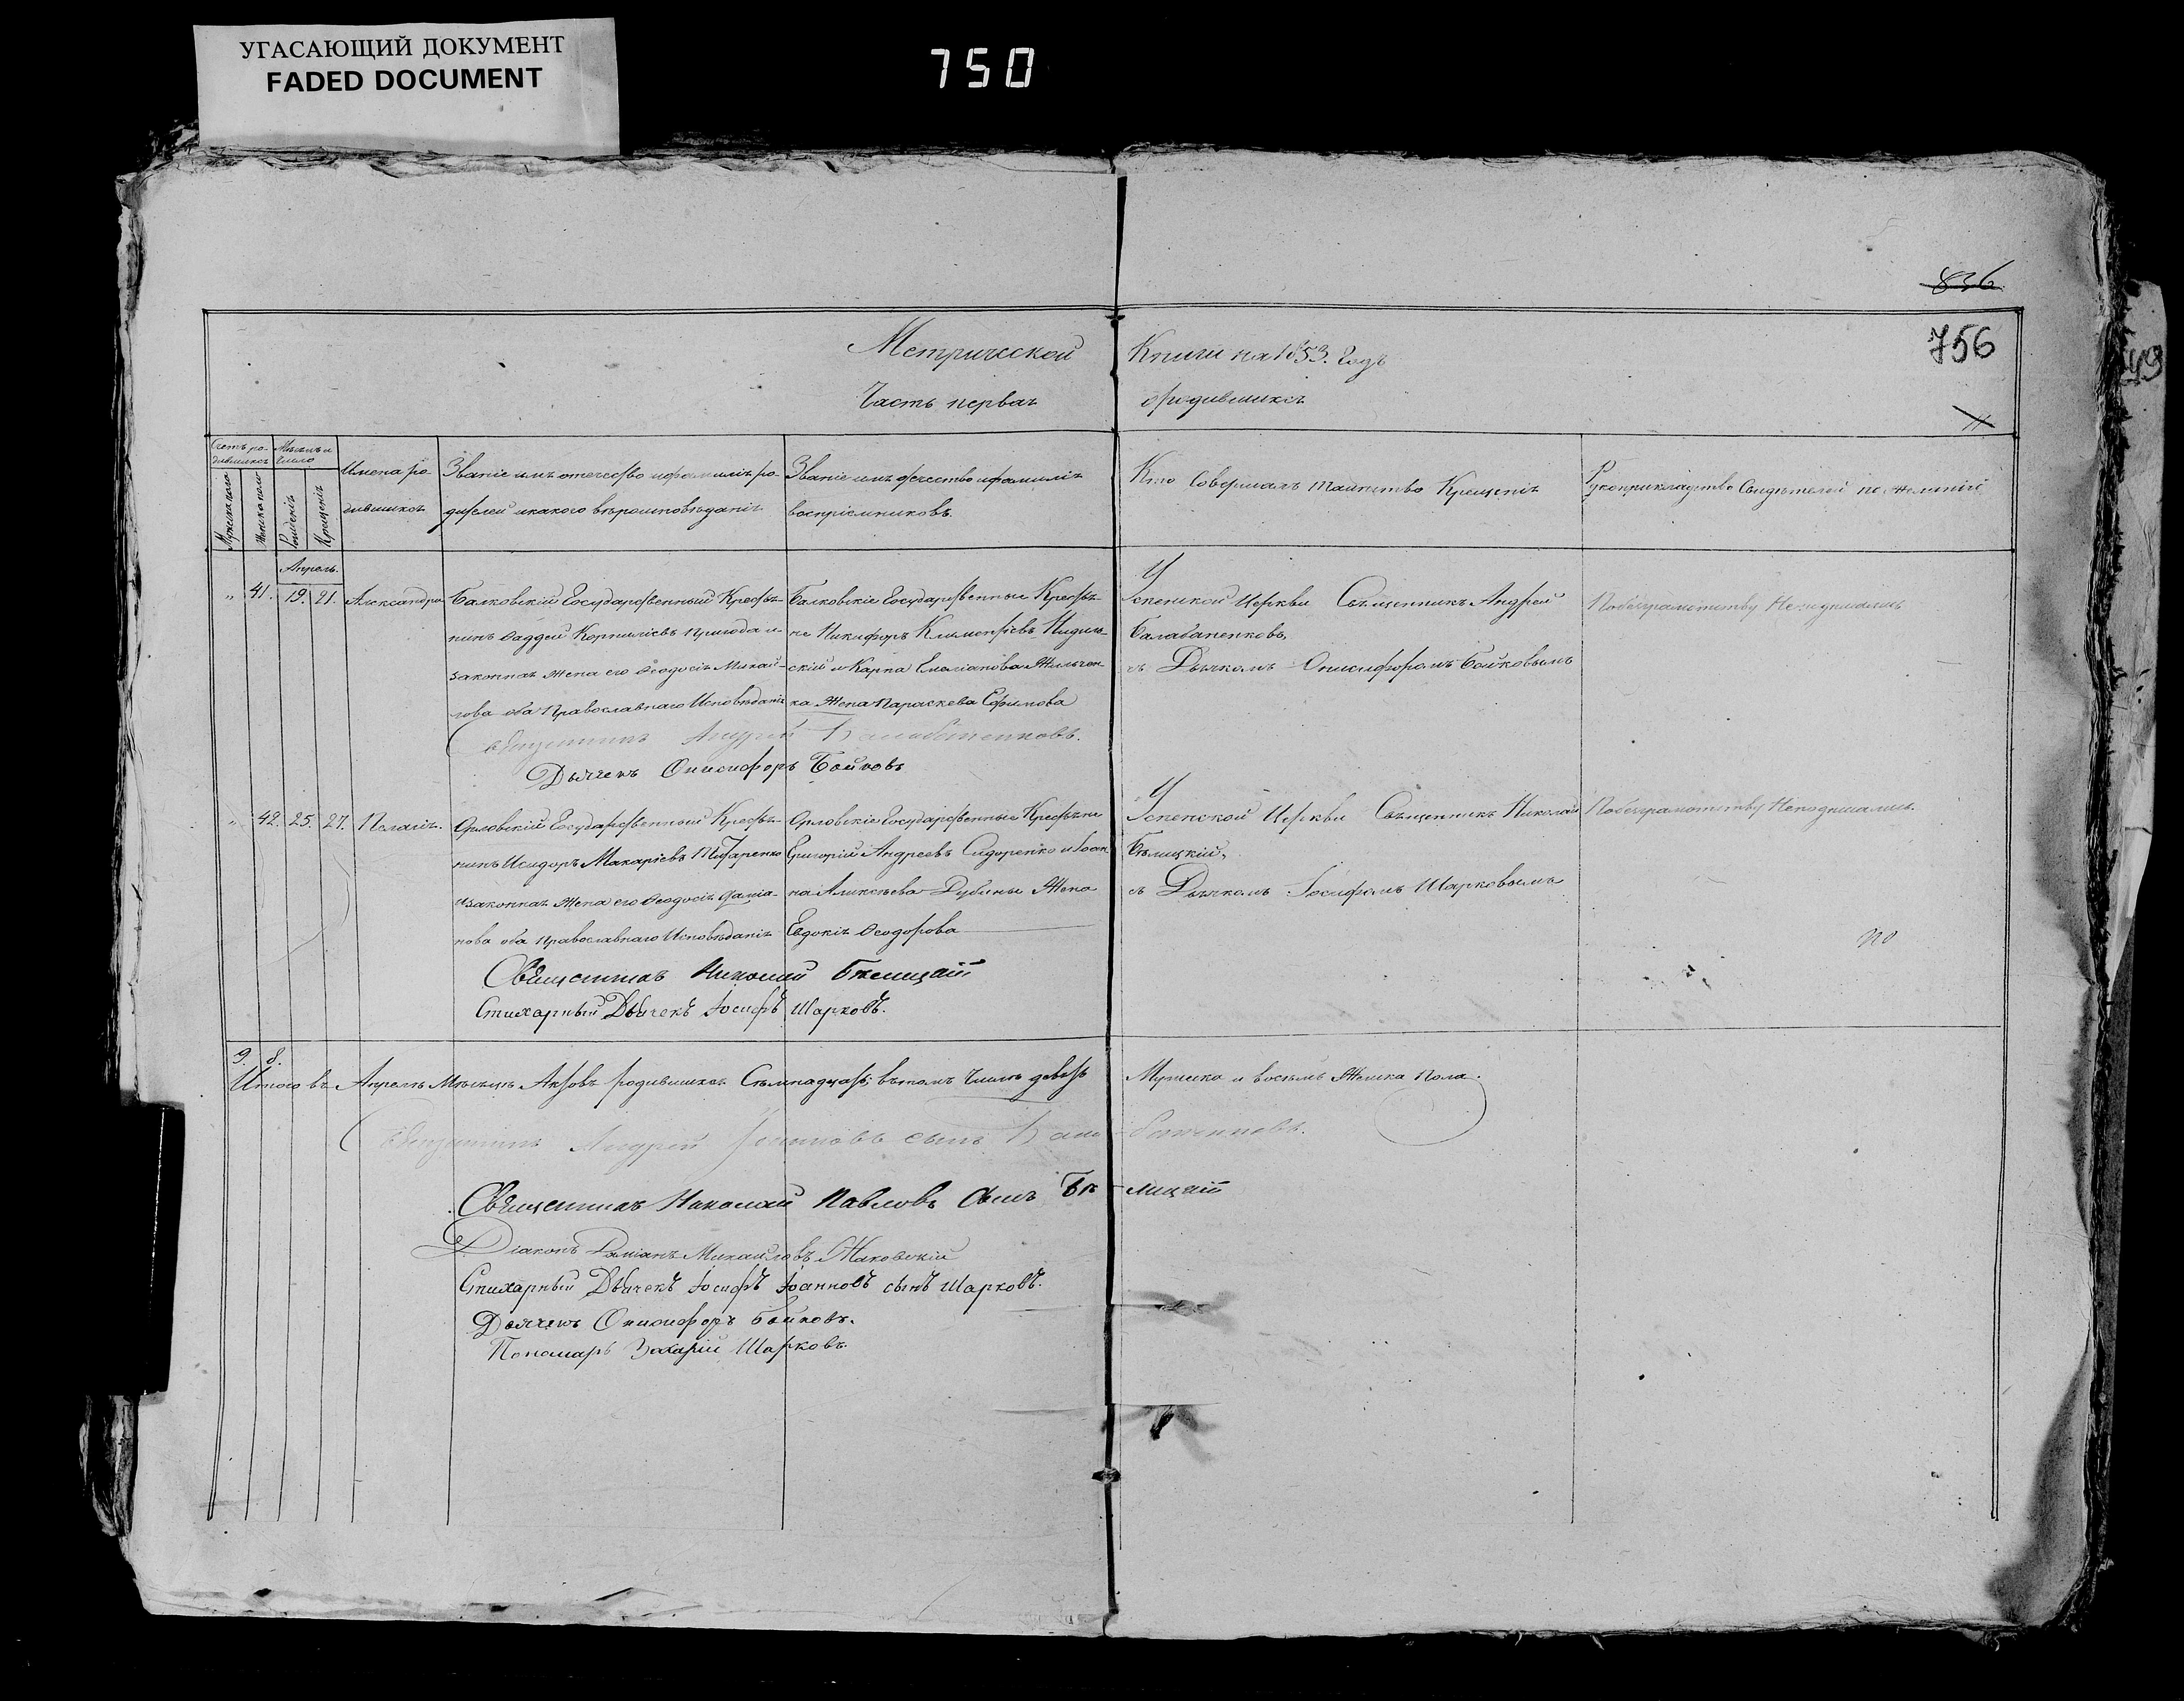 УГАСАЮЩИЙ ДОКУМЕНТ
FADED DOCUMENT
750
836
756
Метрической Книги на 1853. Годъ
Часть первая о родившихся
Счетъ ро-
дившихся
Мужеска пола
Женска пола
Мѣсяцъ и
число
Рожденія
Крещенія
Имена ро-
дившихся
Званіе имя отечество и фамилія ро-
дителей и какого вѣроисповѣданія
Званіе имя отечество и фамилія
воспріемниковъ.
Кто Совершалъ таинство Крещенія
Рукоприкладство Свидѣтелей по желанію
Апрель.
" 41. 19. 21. Александра
Балковскій Государственный Кресть-
нинъ Фаддей Корниліевъ Пригода и
законная жена его Феодосія Михай-
лова оба Православнаго Исповѣданія
Балковскіе Государственные Кресть-
не Никифоръ Климентіевъ
скій и Карпа Емеліанова
ка Жена Параскева Ефимова
Успенской Церкви Священникъ Андрей
Балабаненковъ,
съ Дьячкомъ Онисифоромъ Бойковымъ
Побезграмотству Неподписались
Священникъ Андрей Балабаненковъ.
Дьячекъ Онисифоръ Бойковъ
" 42. 25. 27. Пелагія.
Орловскій Государственный Кресть-
нинъ Исидоръ Макаріевъ
и законная жена его Феодосія Даміа-
нова оба Православнаго Исповѣданія
Орловскіе Государственные Крестьяне
Григорій Андреевъ Сидоренко и Іоан
на Алексѣева Дубины Жена
Евдокія Феодорова
Успенской Церкви Священникъ Николай
Бѣлицкій,
съ Дьячкомъ Іосифомъ Шарковымъ
Побезграмотству Неподписались.
по
Священникъ Николай Бѣлицкій
Стихарный Дьячекъ Іосифъ Шарковъ.
9. 8.
Итого въ Апрелѣ Мѣсяцѣ Актовъ родившихся Семнадцать, въ томъ числѣ девять Мужска и восемь Женска Пола.
Священникъ Андрей сынъ Балабаненковъ.
Священникъ Николай Павловъ сынъ Бѣ-лицкій
Діаконъ Даміанъ Михайловъ Жаковскій
Стихарный Дьячекъ Іосифъ Іоанновъ сынъ Шарковъ.
Дьячекъ Онисифоръ Бойковъ.
Пономарь Захарій Шарковъ.